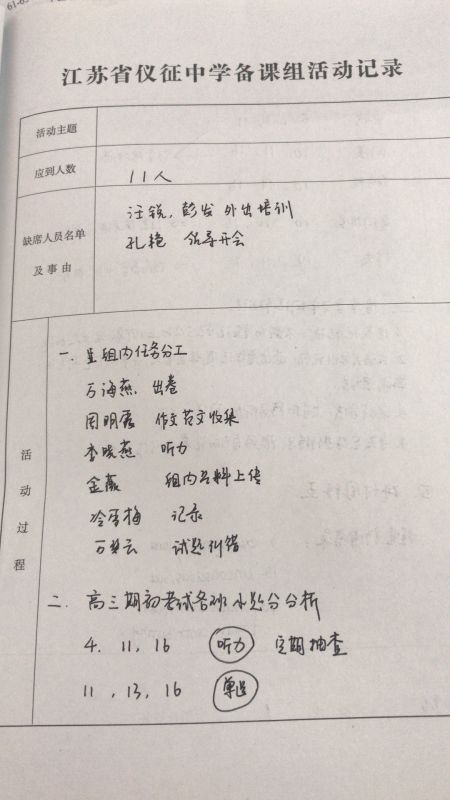 江苏省仪征中学备课组活动记录
活动主题
应到人数 11人
缺席人员名单及事由
汪锐,彭发 外出培训
孔艳 领导开会
活动过程
一. 组内任务分工
万海燕 出卷
周明霞 作文范文收集
李晓燕 听力
金薇 组内资料上传
冷雪梅 记录
试题纠错
二. 高三期初考试各班小题分分析
4. 11, 16 听力 定期抽查
11, 13, 16 单选